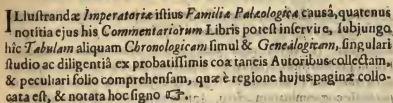 ILlustrandæ Imperatoriæ istius Familiæ Palæologicæ causâ, quatenus
notitia ejus his Commentariorum Libris potest inservire, subjungo
hîc Tabulam aliquam Chronologicam simul & Genealogicam, singulari
studio ac diligentiâ ex probatissimis coætaneis Autoribus collectam,
& peculiari folio comprehensam, quæ è regione hujus paginæ collo-
cata est, & notata hoc signo ☞.